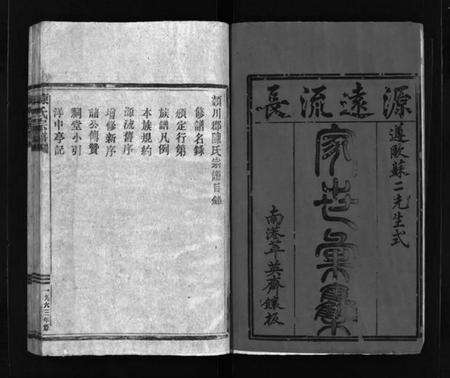 源遠流長
遵歐蘇二先生式
家世彙集
南港萃英齋鐫板
潁川郡陳氏宗譜目錄
修譜名錄
頒定行第
族譜凡例
本族規約
源流舊序
增修新序
諸公傳贊
祠堂小引
洋中亭記
陳氏宗譜
一九六三年春